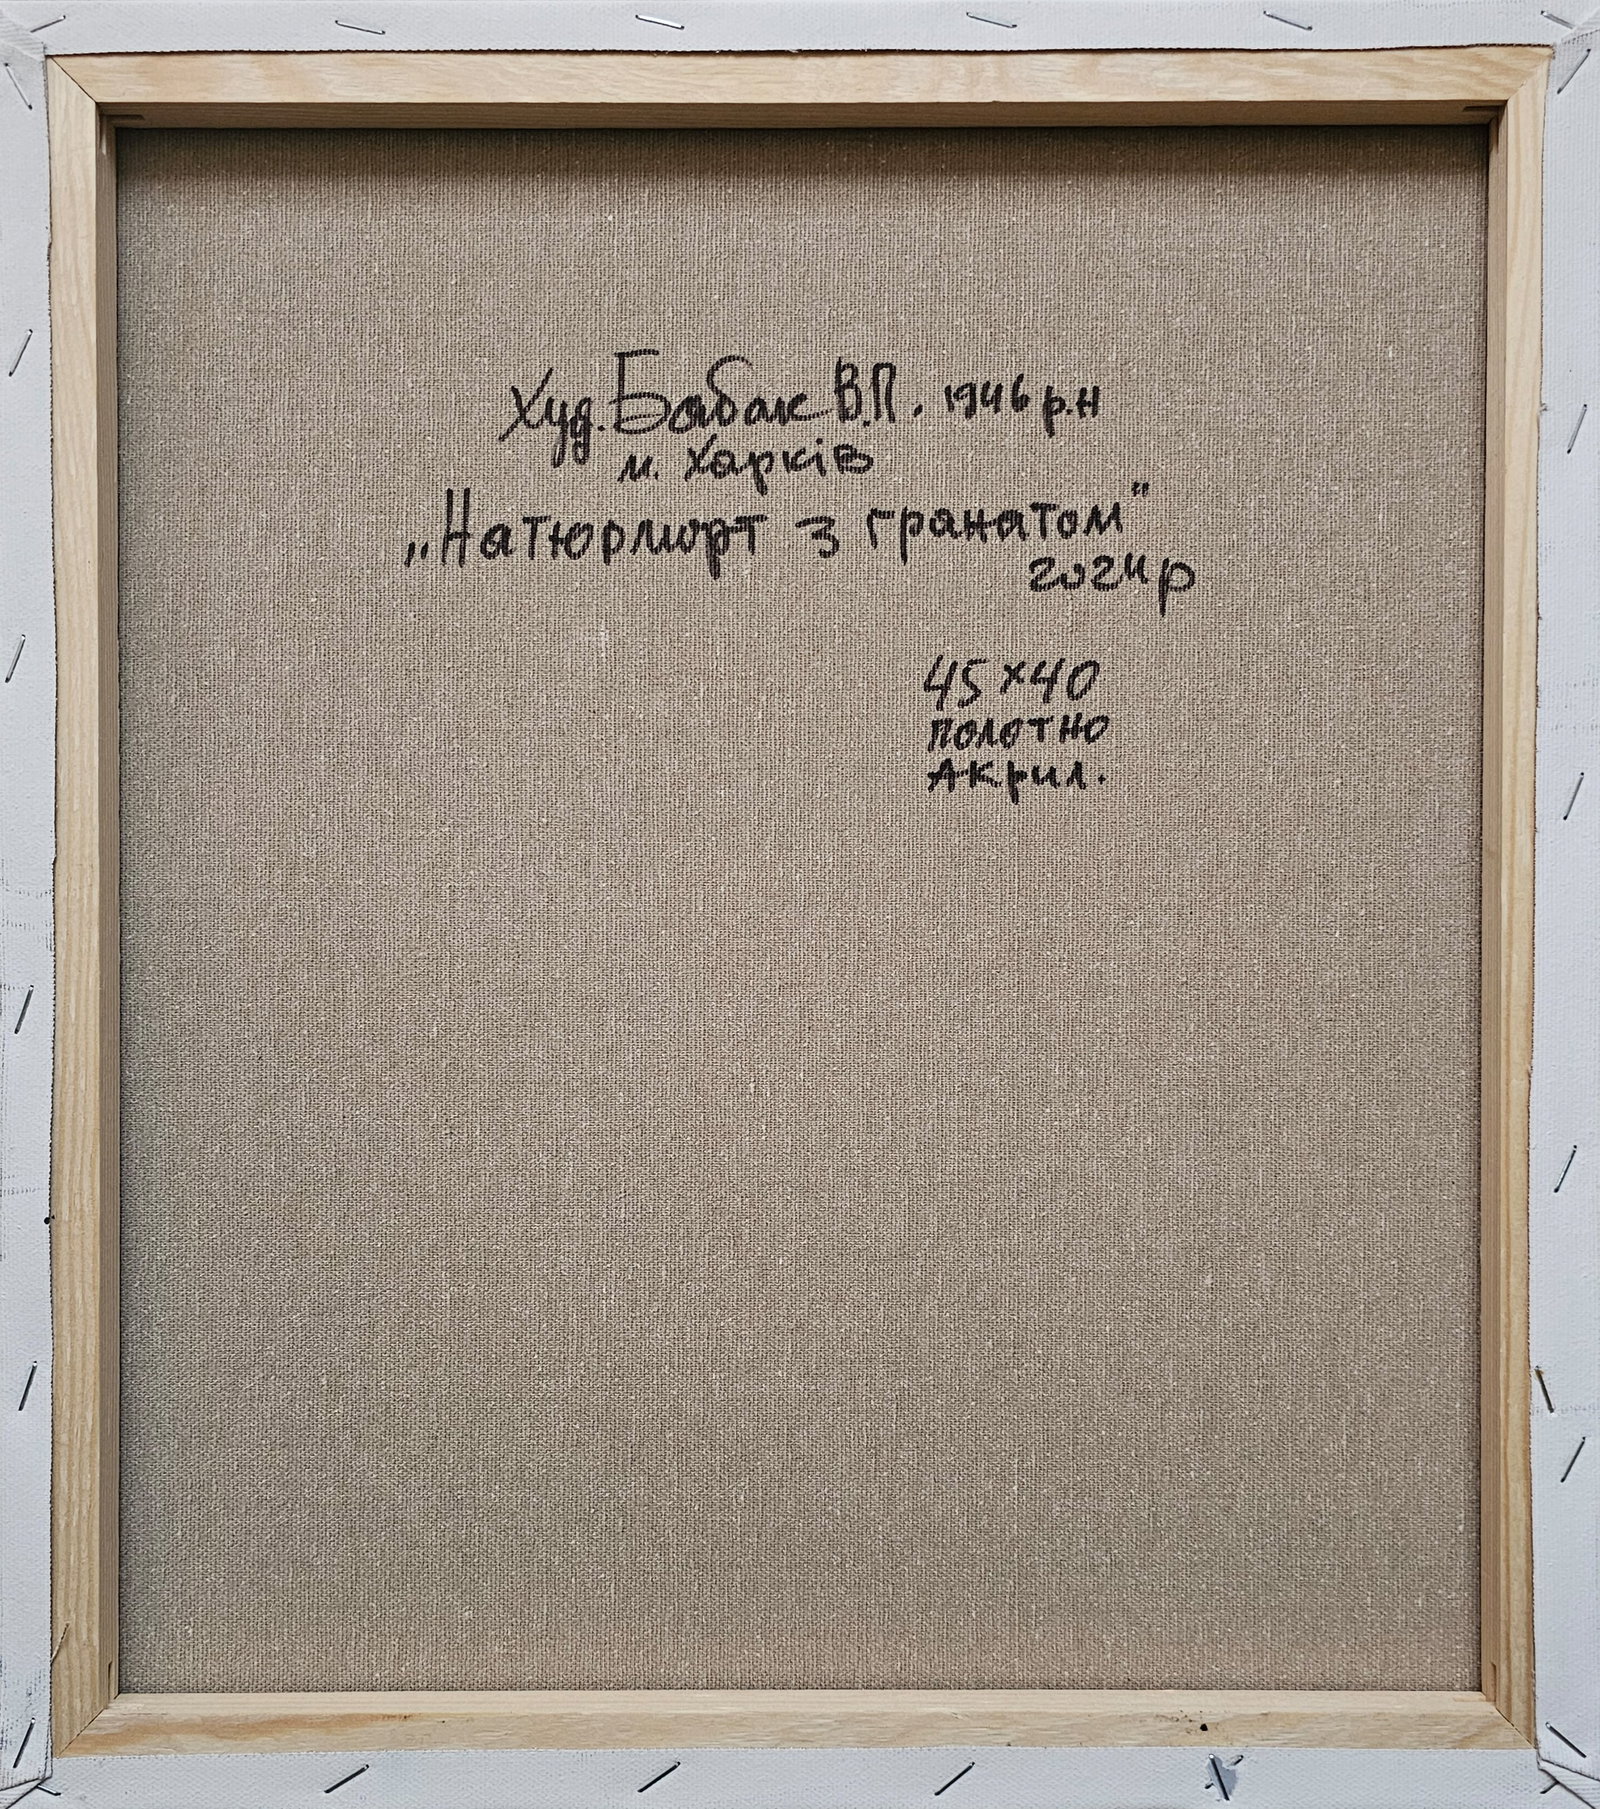 Худ. Бабак В.П. 1946 р.н
м. Харків
„Натюрморт з гранатом"
2024р
45x40
полотно
Акрил.